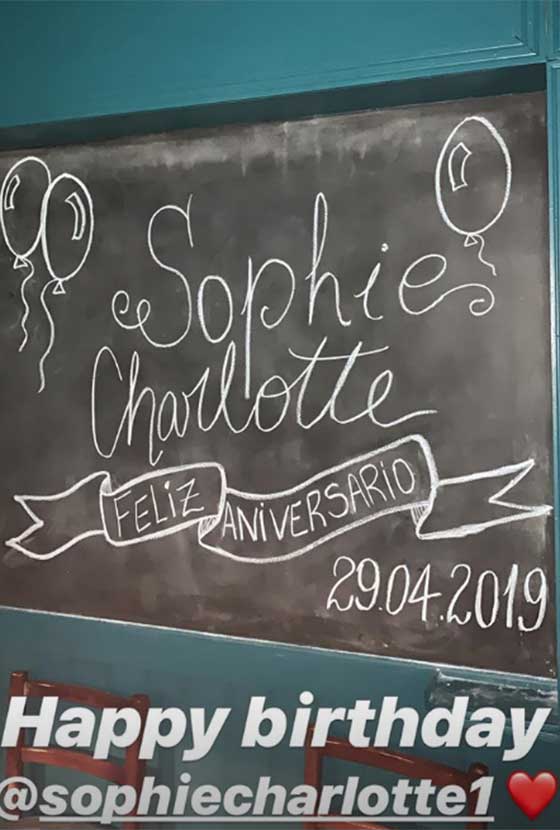 Sophie
Charlotte
FELIZ ANIVERSARIO
29.04.2019
Happy birthday
@sophiecharlotte1 ❤️